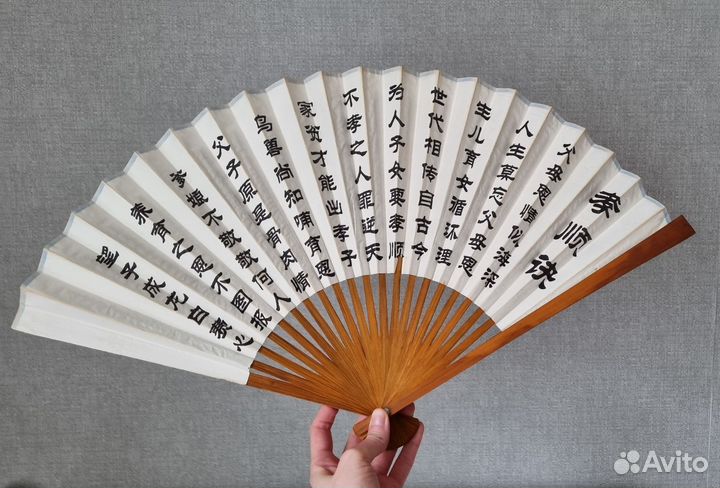 孝顺诀
父母恩情似海深
人生莫忘父母恩
生儿育女循环理
世代相传自古今
为人子女要孝顺
不孝之人罪逆天
家贫才能出孝子
鸟兽尚知哺育恩
父子原是骨肉情
爹娘不敬敬何人
养育之恩不图报
望子成龙白费心
Avito